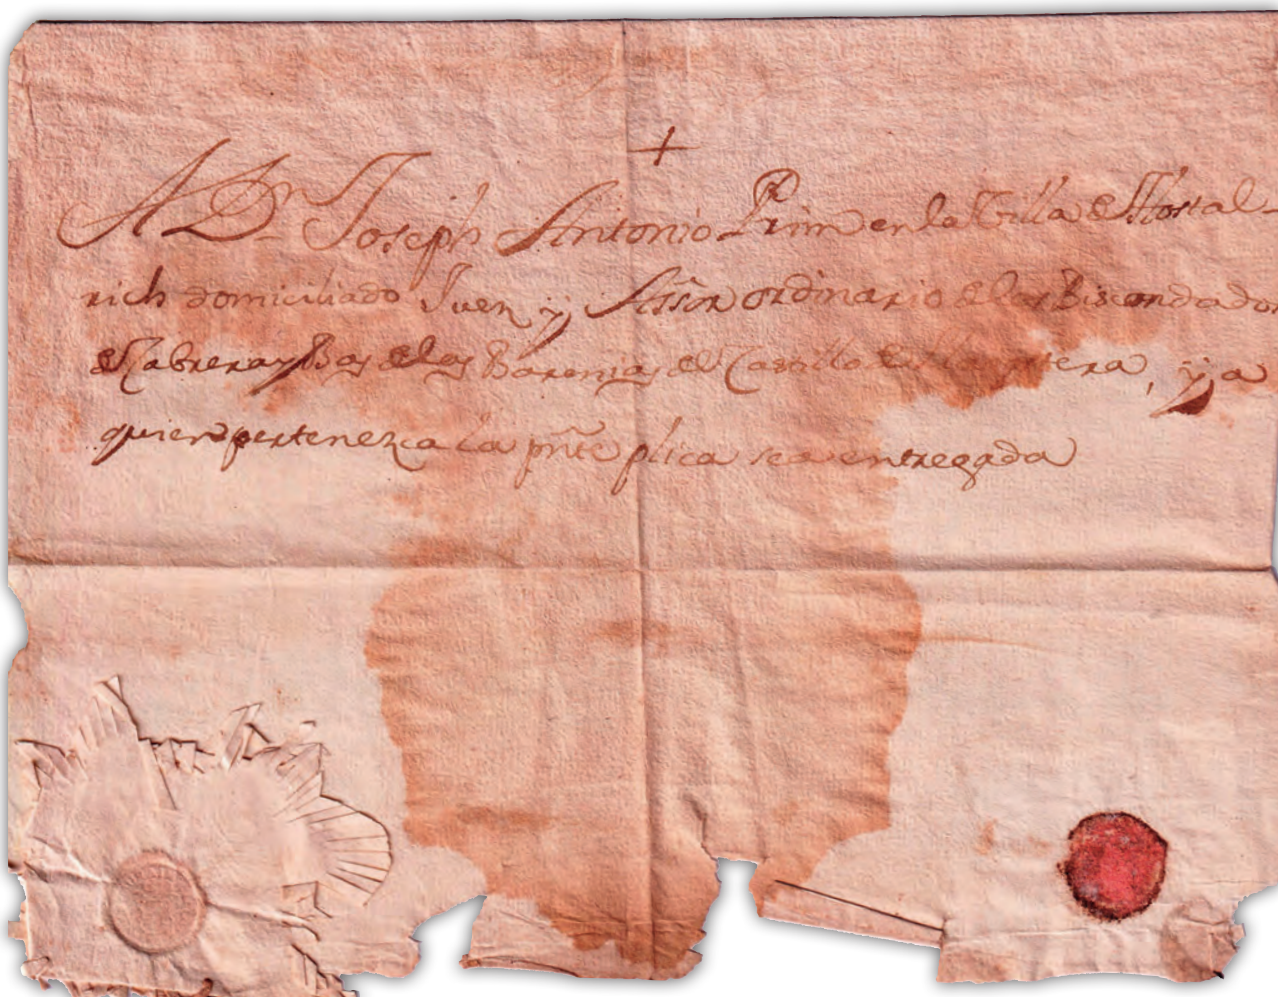 +
A Dn. Joseph Antonio Prim en la Villa de Hostal-
rich domiciliado Juez, y Assr. ordinario de los Biscondados
de Cabrera y Bas de las Baronias de Castillo de, y a
quien pertenezca la pnte plica sea entregada